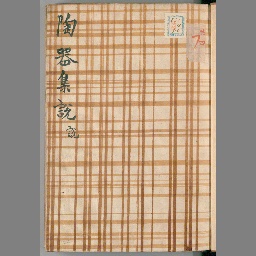 陶器集説